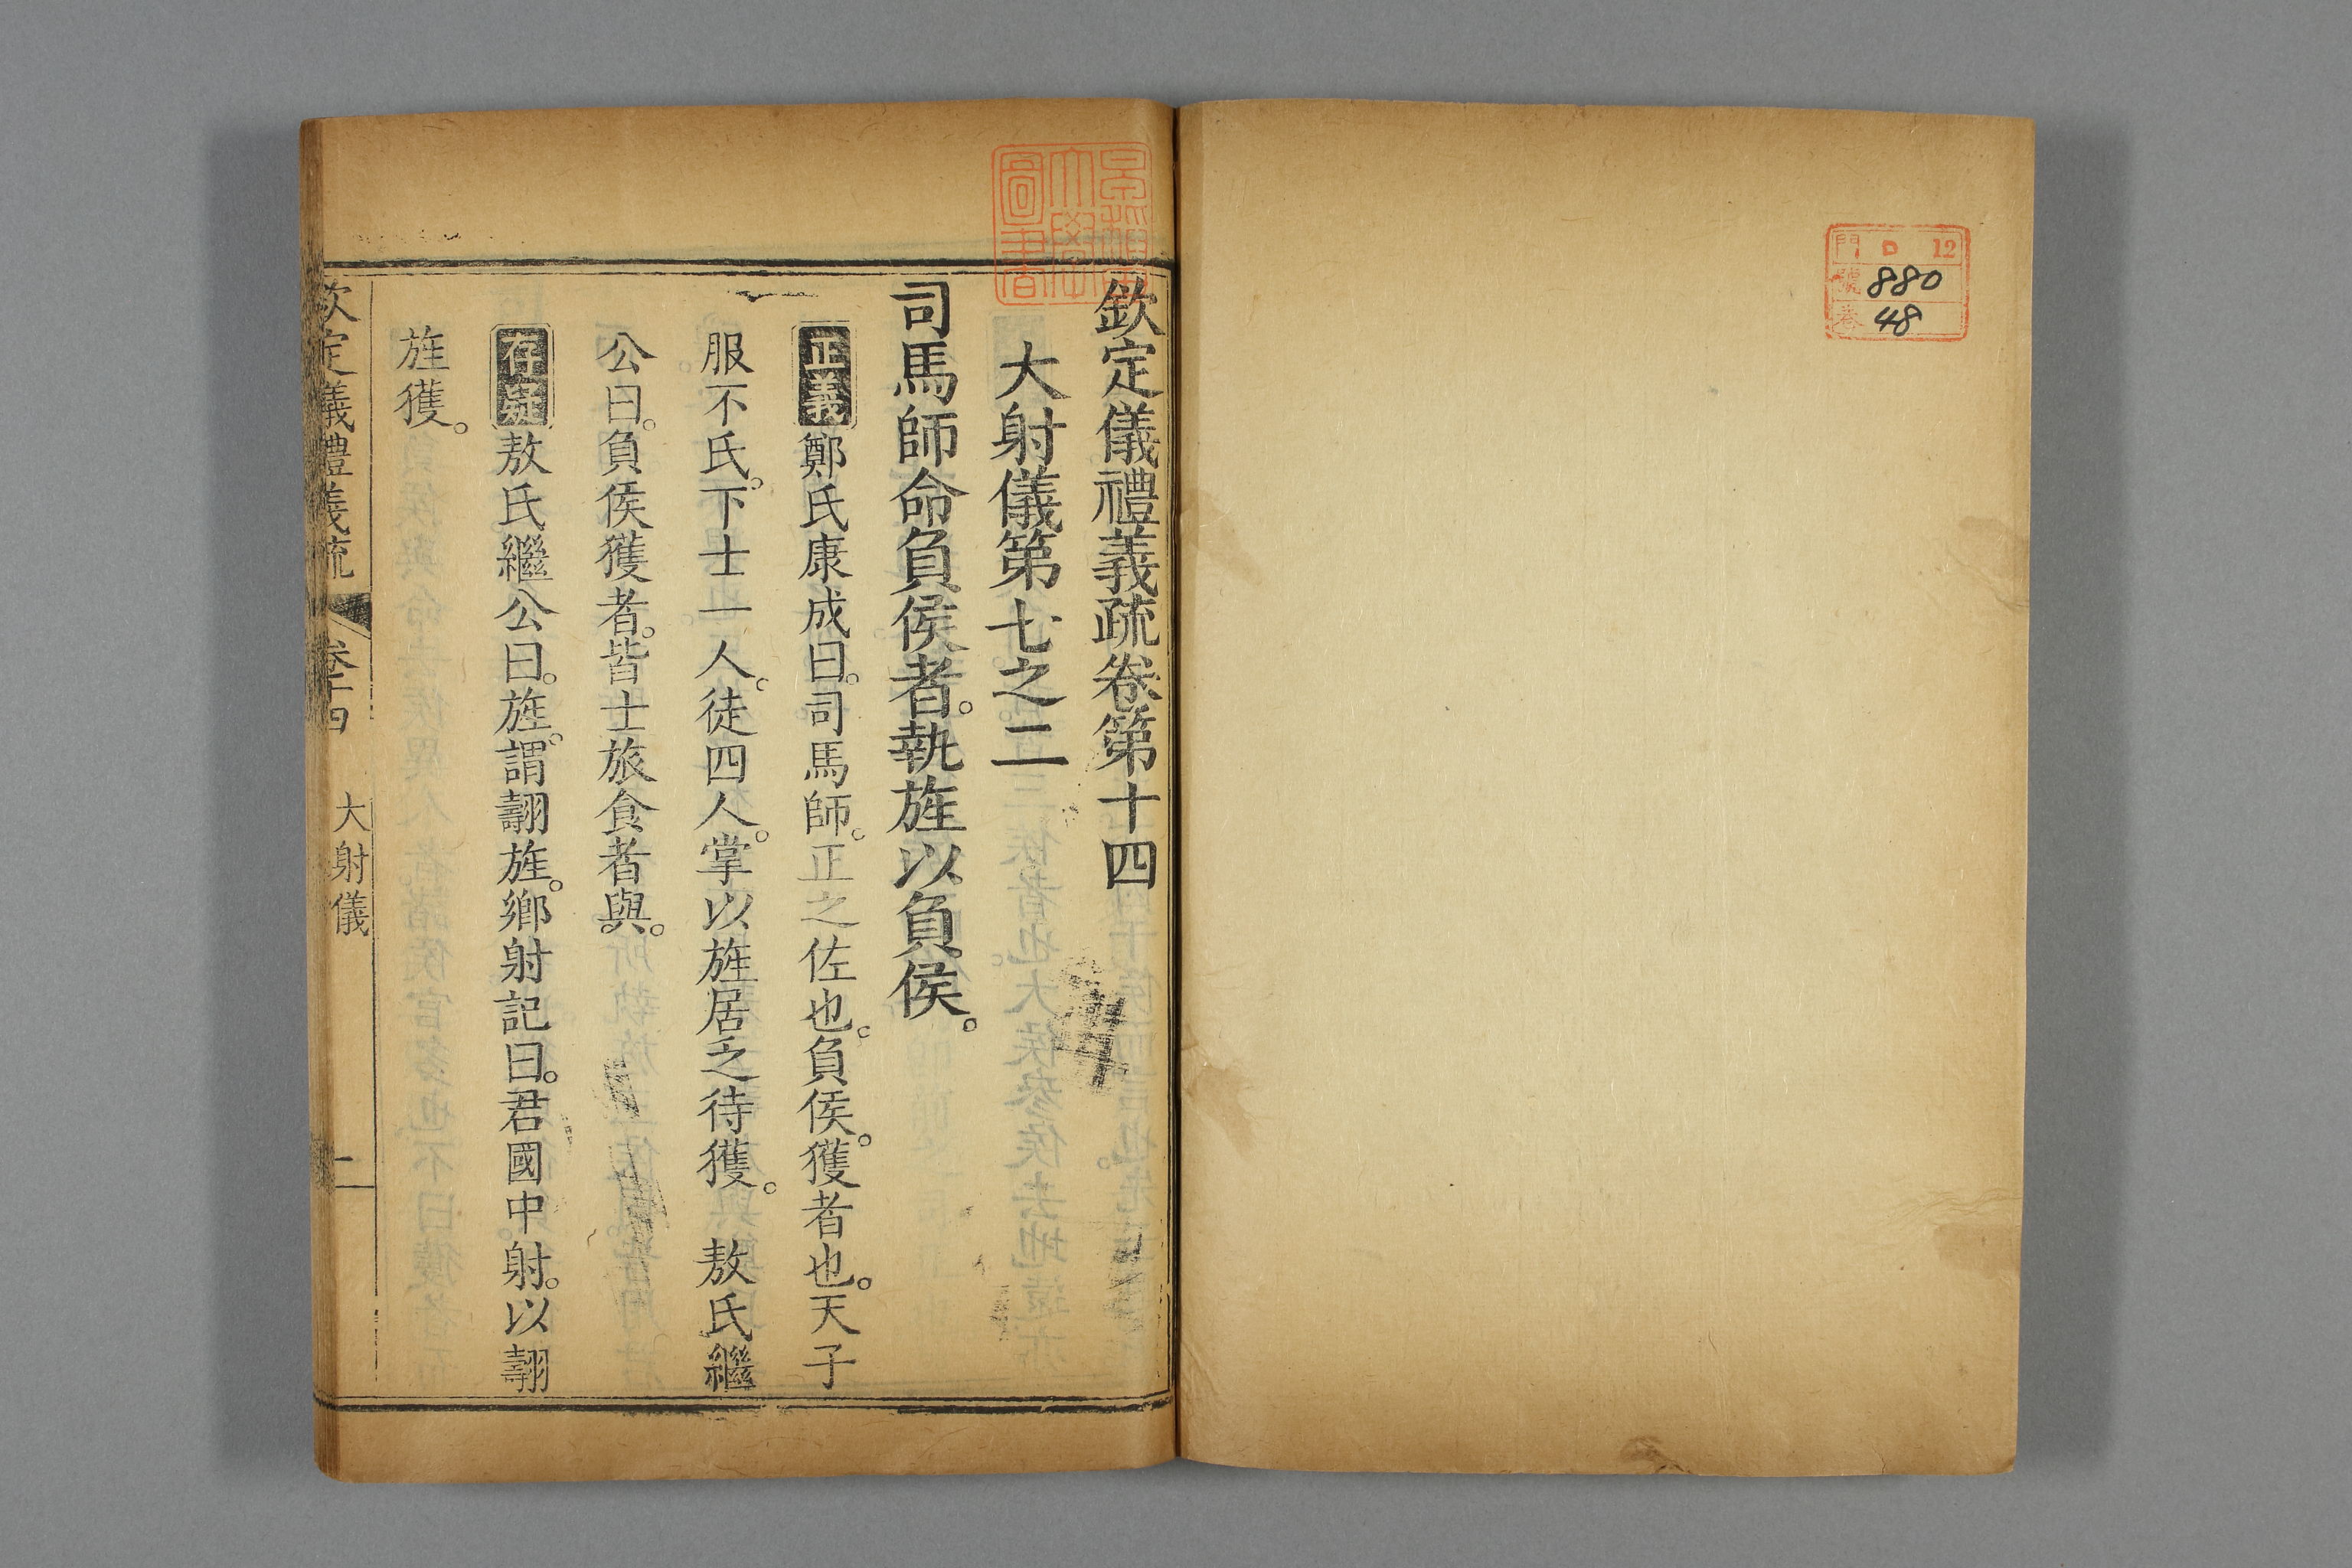 門 口 12
號 880
卷 48
欽定儀禮義疏卷第十四
大射儀第七之二
司馬師命負侯者。執旌以負侯。
正義鄭氏康成曰。司馬師。正之佐也。負侯。獲者也。天子
服不氏。下士一人。徒四人。掌以旌居乏待獲。 敖氏繼
公曰。負侯獲者。皆士旅食者與。
存疑敖氏繼公曰。旌。謂翿旌。鄉射記曰。君國中射。以翿
旌獲。
欽定儀禮義疏 卷十四 大射儀 一